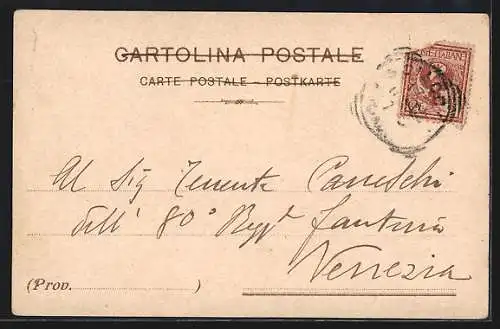 CARTOLINA POSTALE
CARTE POSTALE – POSTKARTE
Al Sig Tenente Paneschi
dell' 80º Regg.t fanteria
Venezia
(Prov. )